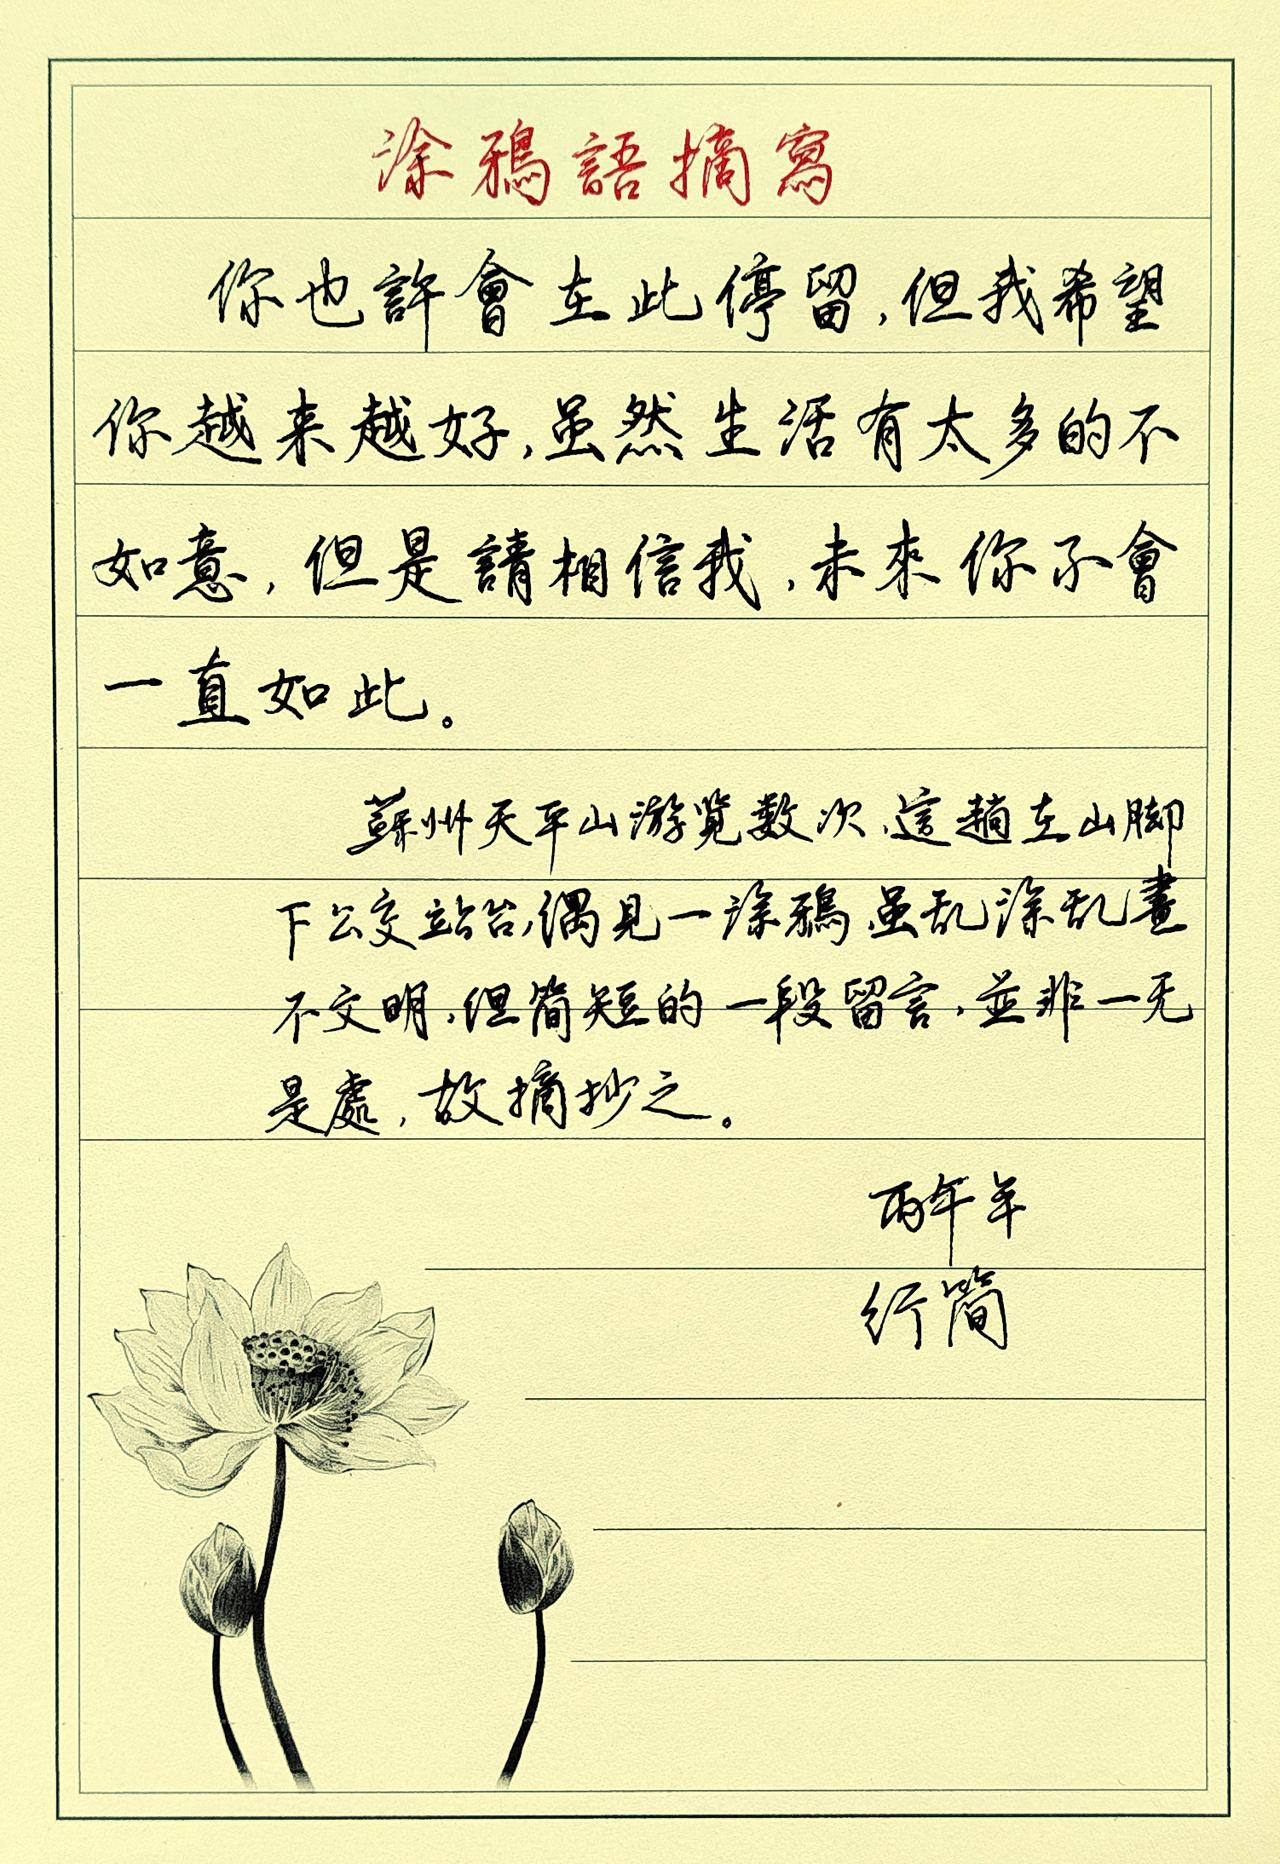 涂鴉語摘寫
你也許會在此停留，但我希望
你越来越好，虽然生活有太多的不
如意，但是請相信我，未來你不會
一直如此。
蘇州天平山游覽数次，這趟在山脚
下公交站台，偶見一涂鴉，虽乱涂乱畫
不文明，但简短的一段留言，並非一无
是處，故摘抄之。
丙午年
行簡